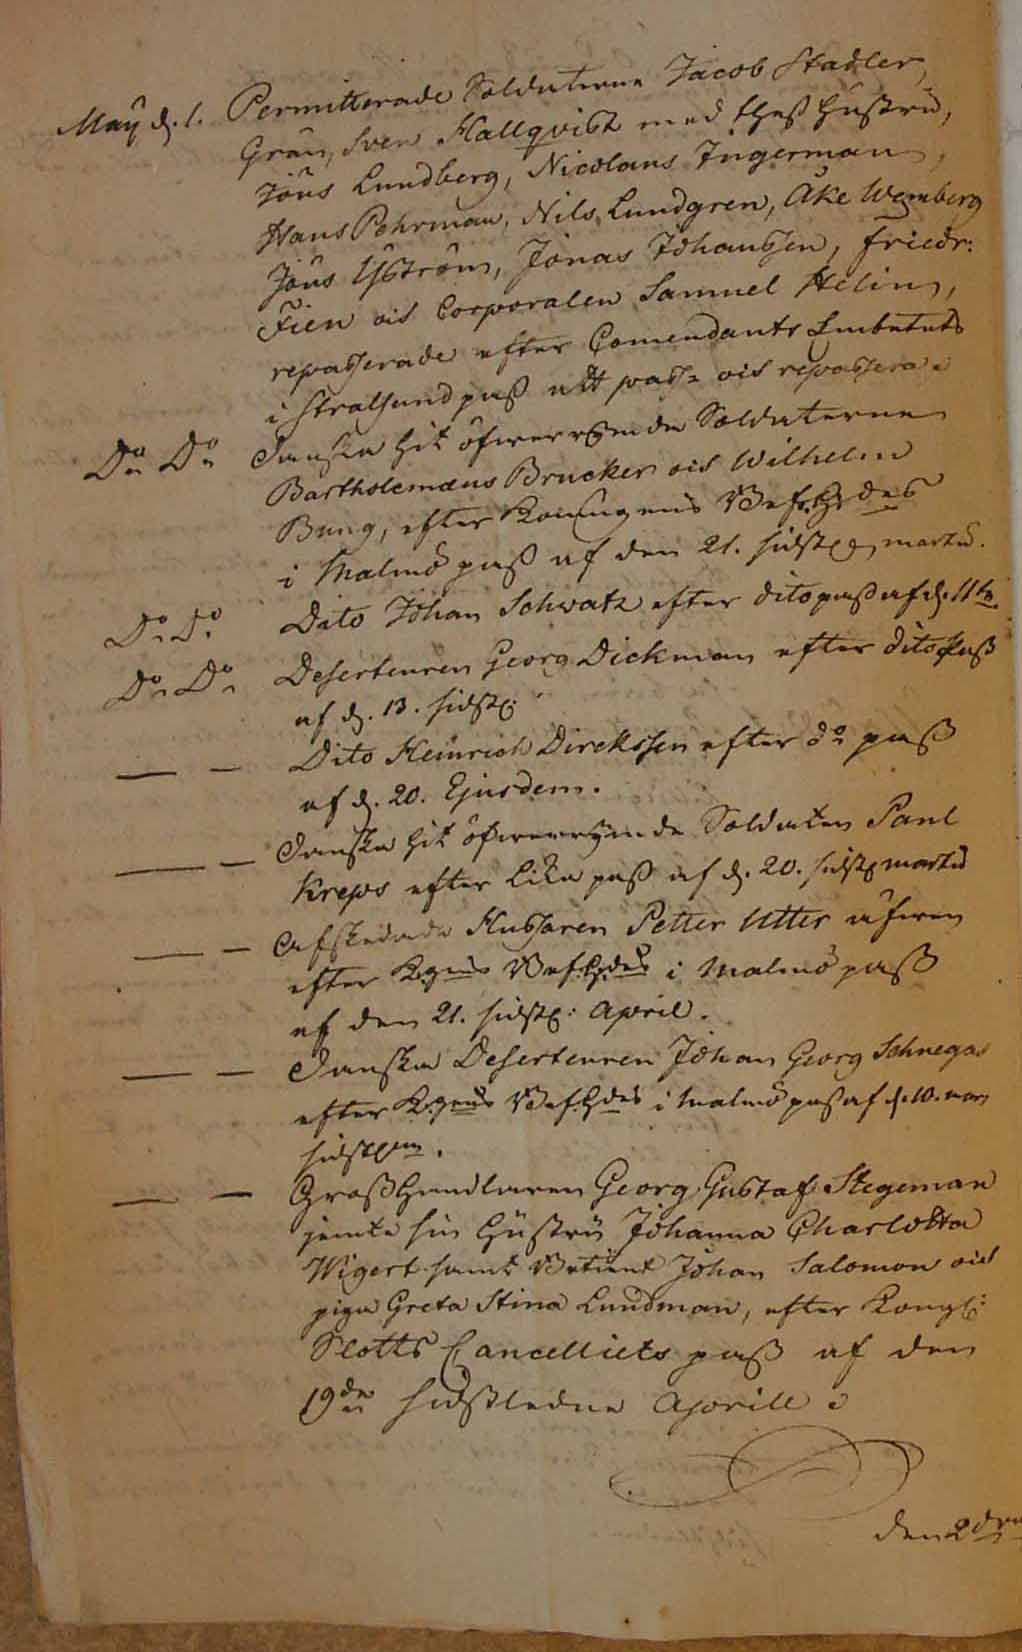 Maÿ d. 1. Permitterade Soldaterne Jacob Stadler,
Grån, Sven Hallqvist med thess hustru,
Jöns Lundberg, Nicolaus Ingerman,
Hans Pehrman, Nils Lundgren, Åke Wemberg
Jöns Ÿström, Jonas Johanssen, Friedr:
Fien och Corporalen Samuel Helin,
repasserade efter Comendants Embetets
i Stralsund pass att passa och repassera.
Do Do Danska hit öfwerrymde Soldaterne
Bartholomæus Brucker och Wilhelm
Bung, efter Konungens Bef:hdes
i Malmö pass af den 21. sidstl: martii.
Do Do Dito Johan Schwatz efter dito pass af d. 11te
Do Do Deserteuren Georg Dickman efter dito Pass
af d. 13. sidstl:
— — Dito Heinrich Dirckssen efter do pass
af d. 20. Ejusdem.
— — Danska hit öfwerrymde Soldaten Paul
Kreps efter lika pass af d. 20. sidstl martii
— — Afskedade Hussaren Petter Utter äfwen
efter K:gens Bef:hdes i Malmö pass
af den 21. sidstl: April.
— — Danska Deserteuren Johan Georg Schnegas
efter K:gens Bef:hdes i Malmö pass af d. 10. mars
sidstl.
— — Grosshandlaren Georg Gustaf Stegeman
jemte sin hustru Johanna Charlotta
Wigert samt Betient Johan Salomon och
piga Greta Stina Lundman, efter Kongl:
Slotts Cancelliets pass af den
19de sidstledne Aprill
den 2dra